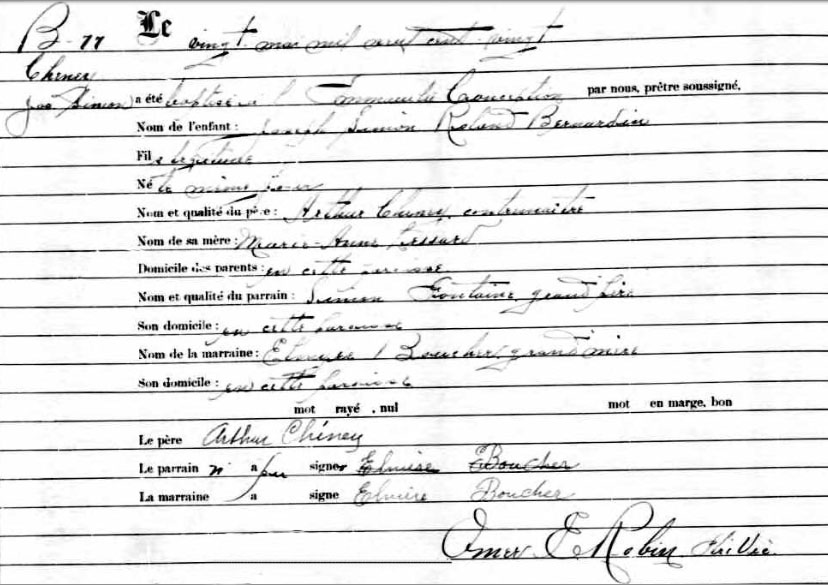 B-77
Cheney
Jos Simon
Le vingt mai mil neuf cent vingt
a été baptisé à l' Immaculée Conception par nous, prêtre soussigné,
Nom de l'enfant : Joseph Simon Roland Bernardin
Fils légitime
Né le même jour
Nom et qualité du père : Arthur Cheney contremaître
Nom de sa mère : Marie-Anne Lessard
Domicile des parents : en cette paroisse
Nom et qualité du parrain : Simon Fontaine, grand père
Son domicile : en cette paroisse
Nom de la marraine : Boucher, grand'mère
Son domicile : en cette paroisse
mot rayé , nul mot en marge, bon
Le père Arthur Cheney
Le parrain n' a pu signer Elmire Boucher
La marraine a signé Elmire Boucher
Omer E Robin Ptre Vic.